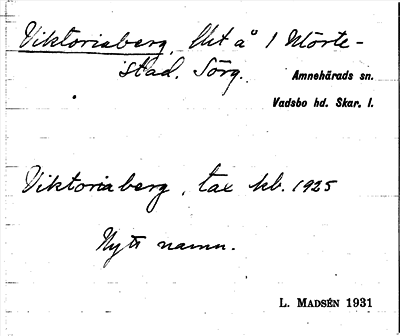 Viktoriaberg, lht å 1 Mörte-
stad, Sörg.
Amnehärads sn.
Vadsbo hd. Skar. l.
Viktoriaberg, tax kb. 1925
Nytt namn.
L. MADSÉN 1931